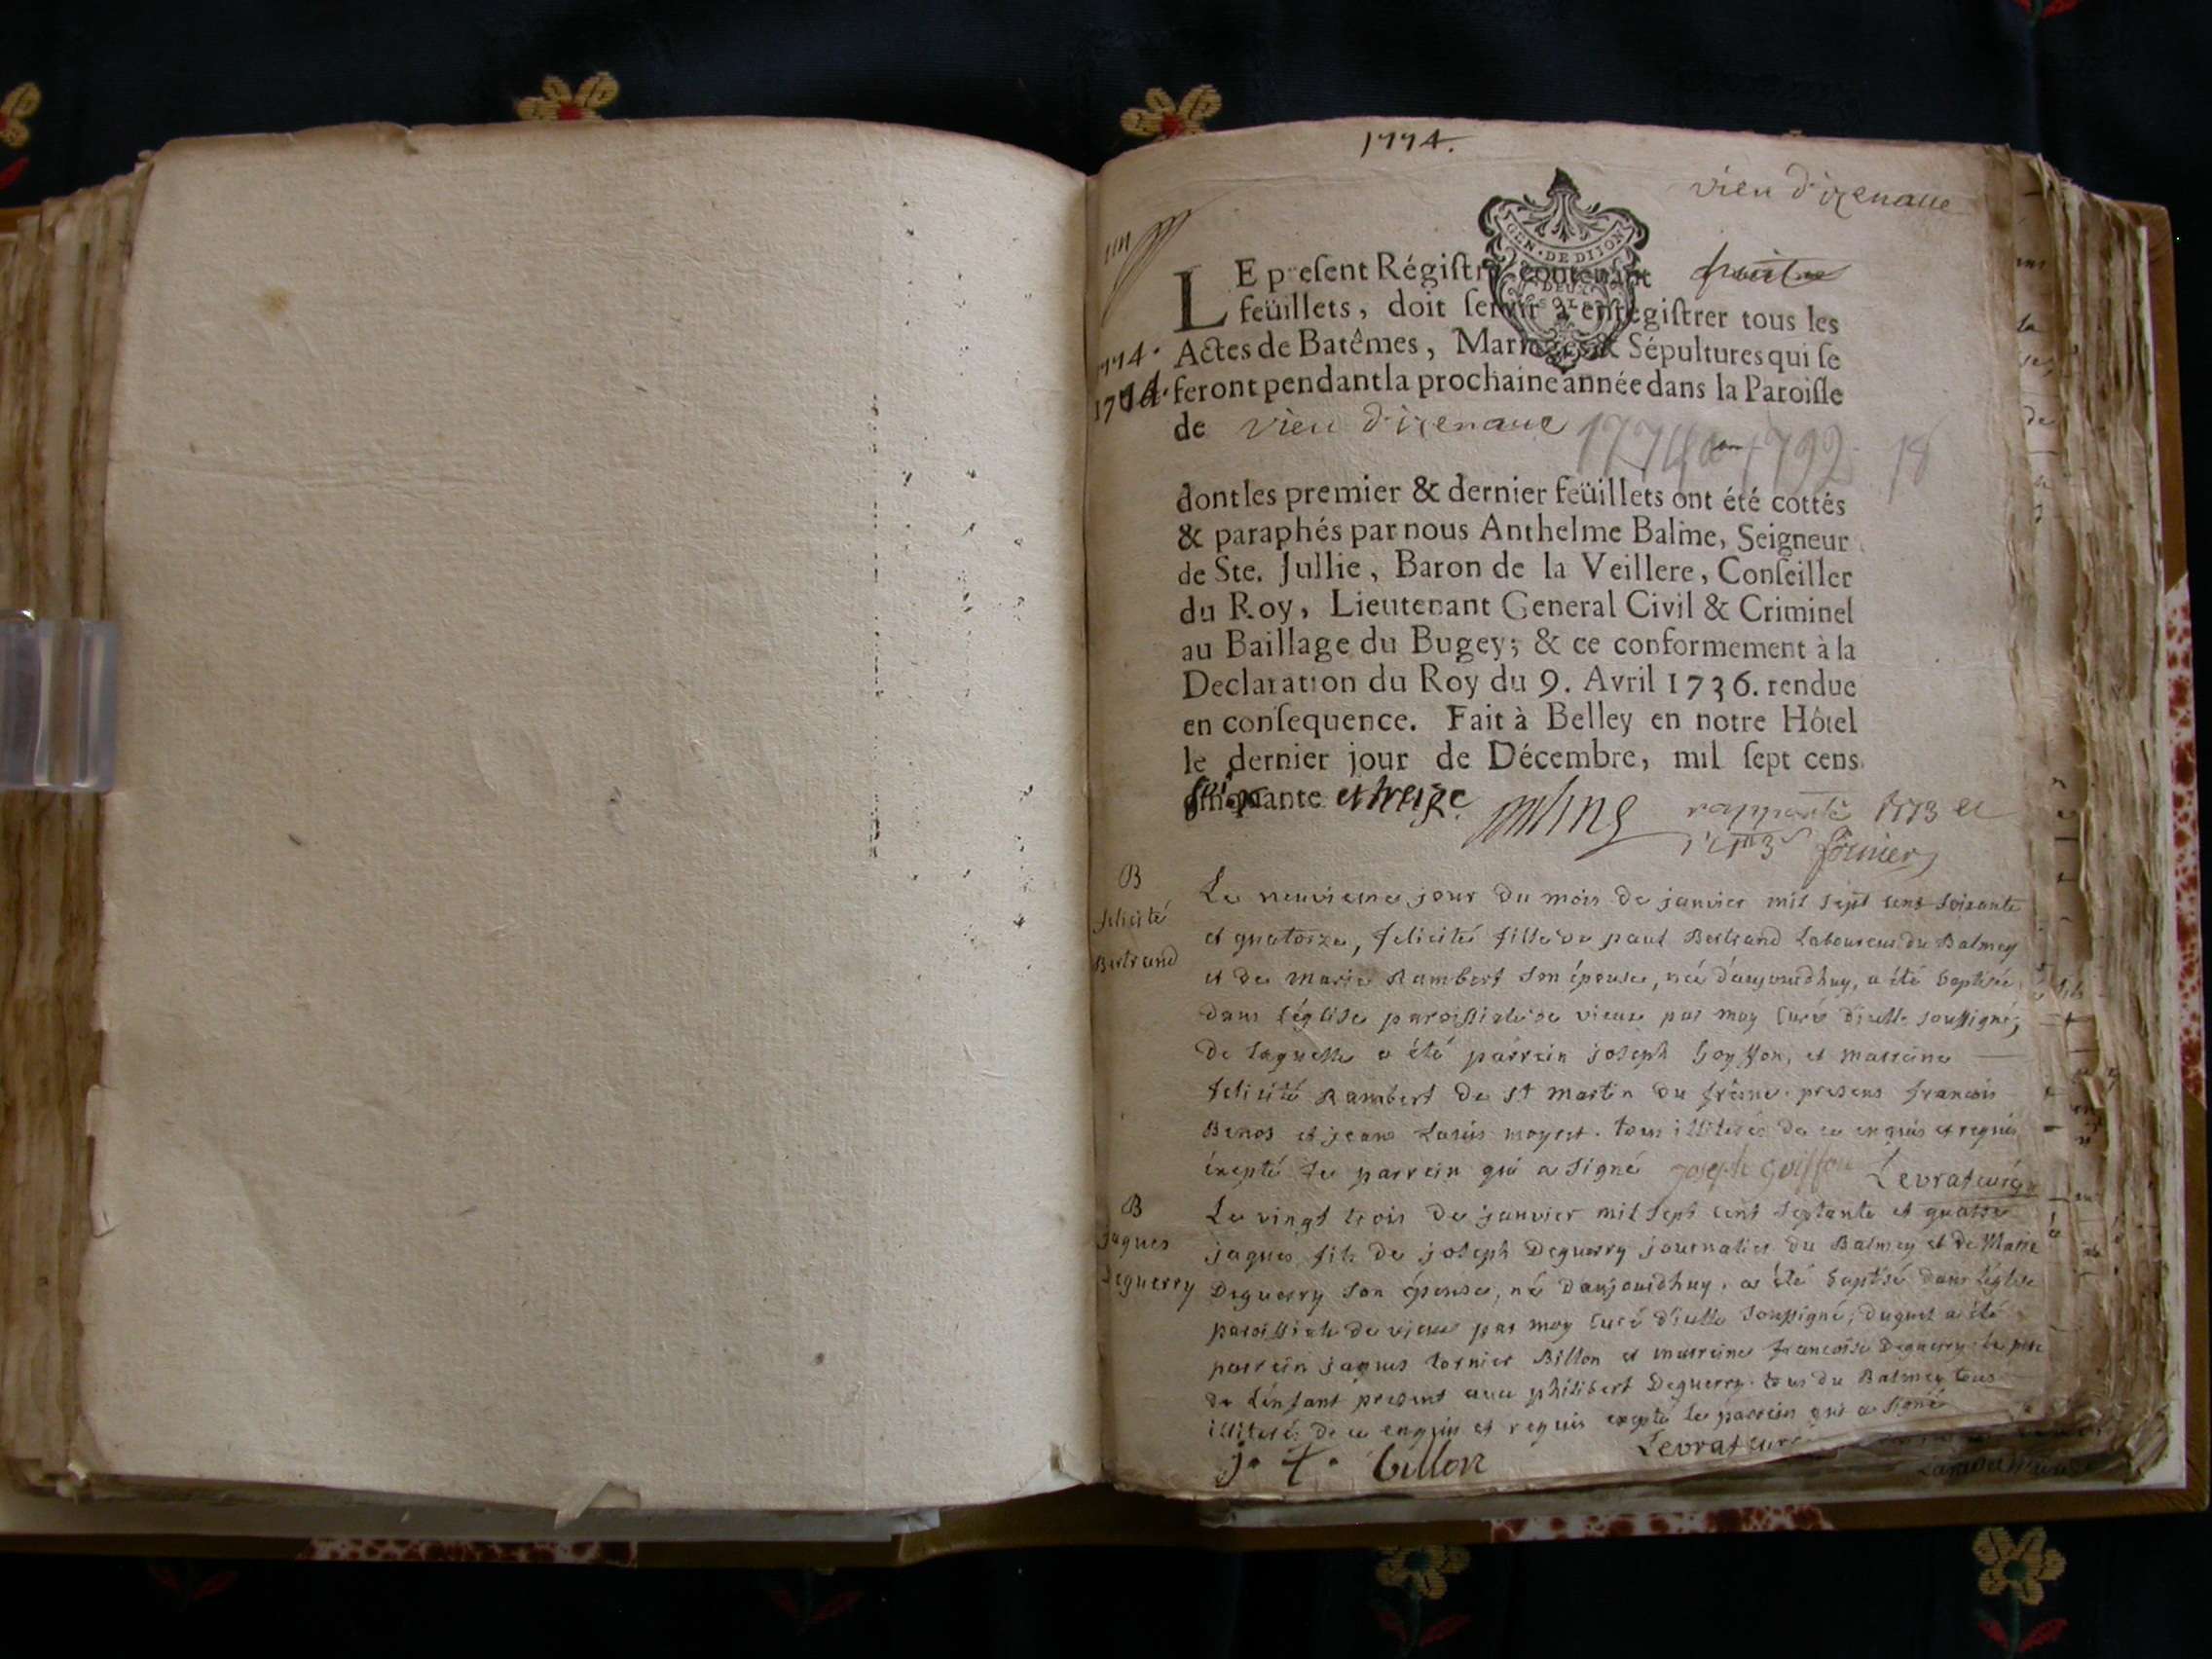 1774.
vieu d'izenave
GEN. DE DIJON
DEUX SOLS
LE present Régistre contenant huit
feüillets, doit servir à enregistrer tous les
1774. Actes de Batêmes, Mariages & Sépultures qui se
feront pendant la prochaine année dans la Paroisse
de vieu d'izenave
1774 a 1792. 18
dont les premier & dernier feüillets ont été cottés
& paraphés par nous Anthelme Balme, Seigneur
de Ste. Jullie, Baron de la Veillere, Conseiller
du Roy, Lieutenant General Civil & Criminel
au Baillage du Bugey; & ce conformement à la
Declaration du Roy du 9. Avril 1736. rendue
en consequence. Fait à Belley en notre Hôtel
le dernier jour de Décembre, mil sept cens
soixante et treize
B
felicité
Bertrand
Le neuvieme jour du mois de janvier mil sept cens soixante
et quatorze, felicité fille de paul Bertrand Laboureur du Balmey
et de Marie Rambert son épouse, née d'aujourdhuy, a été baptisée
dans l'église paroissiale de vieux par moy curé d'icelle soussigné;
de laquelle a été parrein joseph goyffon, et marreine
felicité Rambert de St Martin du frêne. presens francois
Benos et jean Louis moyret. tous illiterés de ce enquis et requis
éxcepté le parrein qui a signé joseph goiffon Levrat curé
B
jaques
Deguerry
Le vingt trois de janvier mil sept cent septante et quatre
jaques fils de joseph Deguerry journalier du Balmey et de Marie
Deguerry son épouse, né d'aujourdhuy, a été baptisé dans l'église
paroissiale de vieux par moy curé d'icelle soussigné; duquel a été
parrein jaques tornier Billon et marreine francoise Deguerry. le pere
de l'enfant present avec philibert Deguerry. tous du Balmey tous
illiterés de ce enquis et requis excepté le parrein qui a signé
j. t. billon Levrat curé